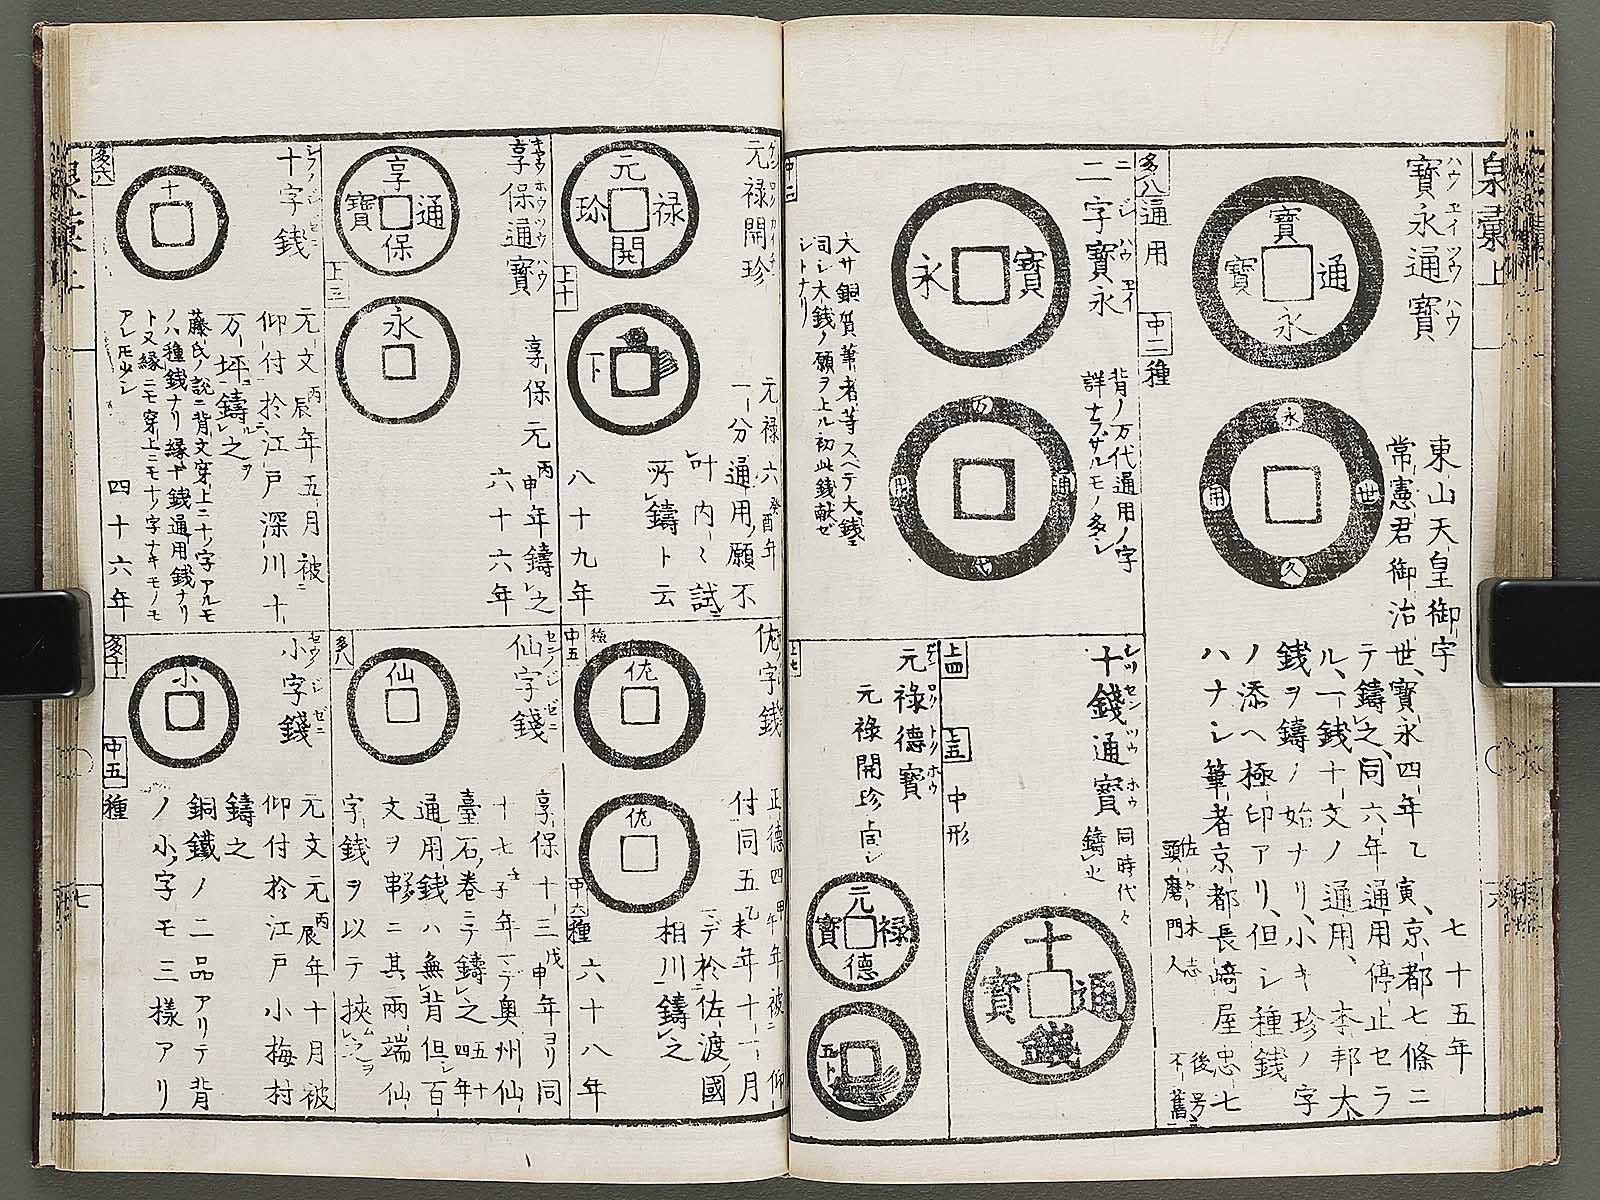 泉彙上
寶永通寶
ハウヱイツウハウ
寶永通寶
永世久用
東山天皇御宇
常憲君御治世、寶永四年乙
七十五年
テ鑄之、同六年通用停止セラ
ル、一銭十文ノ通用、
銭ヲ鑄ノ始ナリ、小キ珍ノ字
ノ添ヘ極印アリ、但シ種銭
ハナシ筆者京都長﨑屋忠七
佐々木志
頭磨門人
多八通用
中二種
二字寶永
ニジハウヱイ
永寶
万代通用
背ノ万代通用ノ字
詳ナラザルモノ多シ
大サ銅質筆者等スベテ大銭
司シ大銭ノ願ヲ上ル初此銭献ゼ
シトナリ
十錢通寶
同時代々
鑄止
十錢通寶
上四
上五
中形
元禄德寶
ゲンロクトクホウ
元禄開珍同シ
元禄德寶
五下
元禄開珍
元禄開珍
下
元禄六癸酉年
一分通用ノ願不
叶内々試ニ
所鑄ト云
八十九年
上十
享保通寶
キヤウホウツウハウ
享保通寶
永
享保元丙申年鑄之
六十六年
上三
十字銭
十
元文丙辰年五月被
仰付於江戸深川十
万坪鑄之
藤氏ノ説ニ背文穿上ニ十ノ字アルモ
ノハ種銭ナリ縁十銭通用銭ナリ
ト又縁ニモ穿上ニモ十ノ字ナキモノモ
アレ𪜈少シ
四十六年
多六
佐字銭
佐
佐
正德四甲午年被仰
付同五乙未年十一月
ニ於佐渡國
相川鑄之
六十八年
中六種
仙字錢
センジゼニ
仙
享保十三戊申年ヨリ同
十七子年マデ奥州仙
臺石ノ巻ニテ鑄之五十四年
通用銭ハ無背但シ百
文ヲ串ニ其両端仙
字銭ヲ以テ挾ム之ヲ
多八
小字錢
小
元文元丙辰年十月被
仰付於江戸小梅村
鑄之
銅鐵ノ二品アリテ背
ノ小字モ三樣アリ
多十
中五種
七